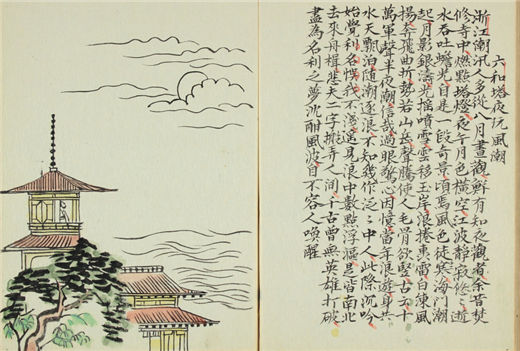 六和塔夜玩風潮
浙江潮汛人多從八月晝觀鮮有知夜觀者余昔焚
修寺中燃點塔燈夜午月色橫空江波靜寂悠々逝
水吞吐蟾光自是一段奇景頃焉風色徒寒海門潮
起月影銀濤光搖噴雪雲移玉岸浪捲轟雷白凍風
揚奔飛曲折勢若山岳聲騰使人毛骨欲竪古云十
萬軍聲半夜潮信哉過眼驚心因憶當年浪遊身共
水天飄泊隨潮逐浪不知幾作泛々中人此際沉吟
始覺利名悮我不淺遙見浪中數點浮漚是皆南北
去來舟楫悲夫二字搬弄人間千古曾無英雄打破
盡為名利之夢沉酣風波自不容人喚醒